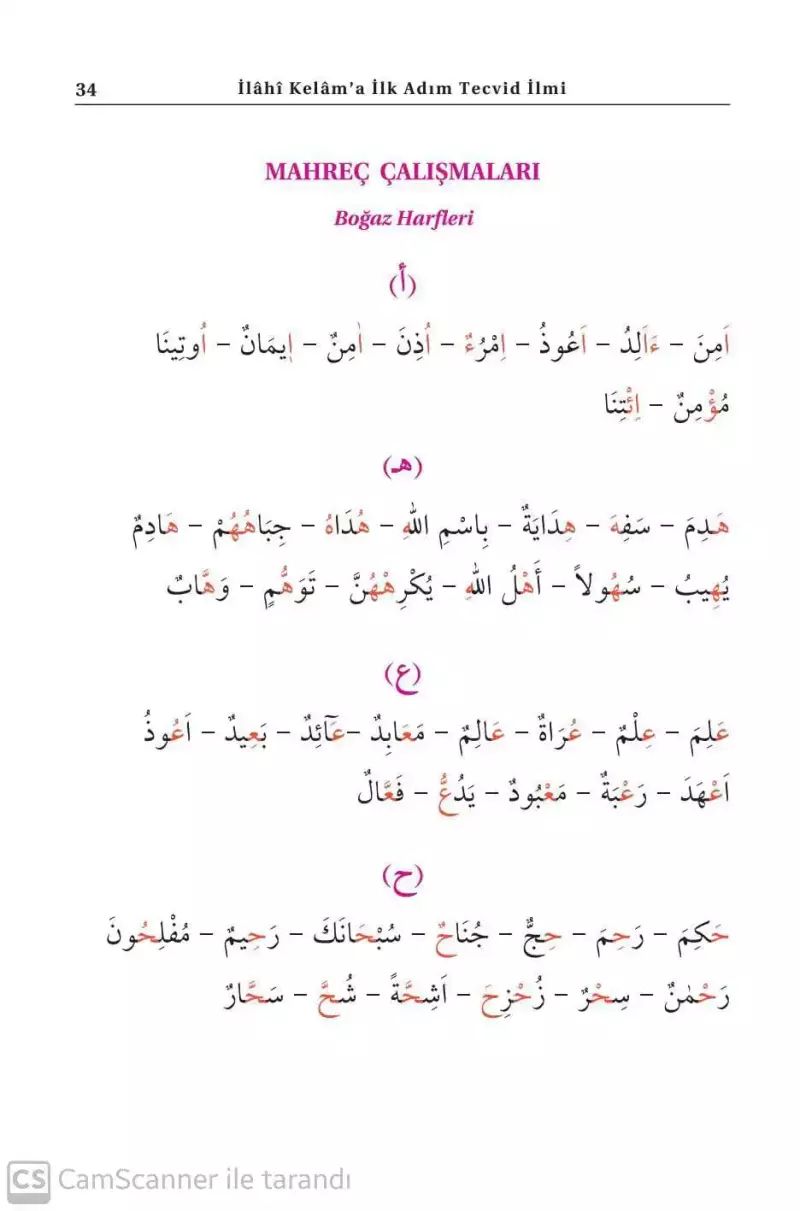 34
İlâhî Kelâm’a İlk Adım Tecvid İlmi
MAHREÇ ÇALIŞMALARI
Boğaz Harfleri
(أ)
اَمِنَ – ءَاَلِدُ – اَعُوذُ – اِمْرُءٌ – اُذِنَ – اٰمِنٌ – اِيمَانٌ – اُوتِينَا
مُؤْمِنٌ – اِئْتِنَا
(هـ)
هَدِمَ – سَفِهَ – هِدَايَةٌ – بِاسْمِ اللّٰهِ – هُدَاهُ – جِبَاهُهُمْ – هَادِمٌ
يُهِيبُ – سُهُولاً – أَهْلُ اللّٰهِ – يُكْرِهْهُنَّ – تَوَهُّمٍ – وَهَّابٌ
(ع)
عَلِمَ – عِلْمٌ – عُرَاةٌ – عَالِمٌ – مَعَابِدٌ –عَٓائِدٌ – بَعِيدٌ – اَعُوذُ
اَعْهَدَ – رَعْبَةٌ – مَعْبُودٌ – يَدُعُّ – فَعَّالٌ
(ح)
حَكِمَ – رَحِمَ – حِجٌّ – جُنَاحٌ – سُبْحَانَكَ – رَحِيمٌ – مُفْلِحُونَ
رَحْمٰنٌ – سِحْرٌ – زُحْزِحَ – اَشِحَّةً – شُحَّ – سَحَّارٌ
CS CamScanner ile tarandı